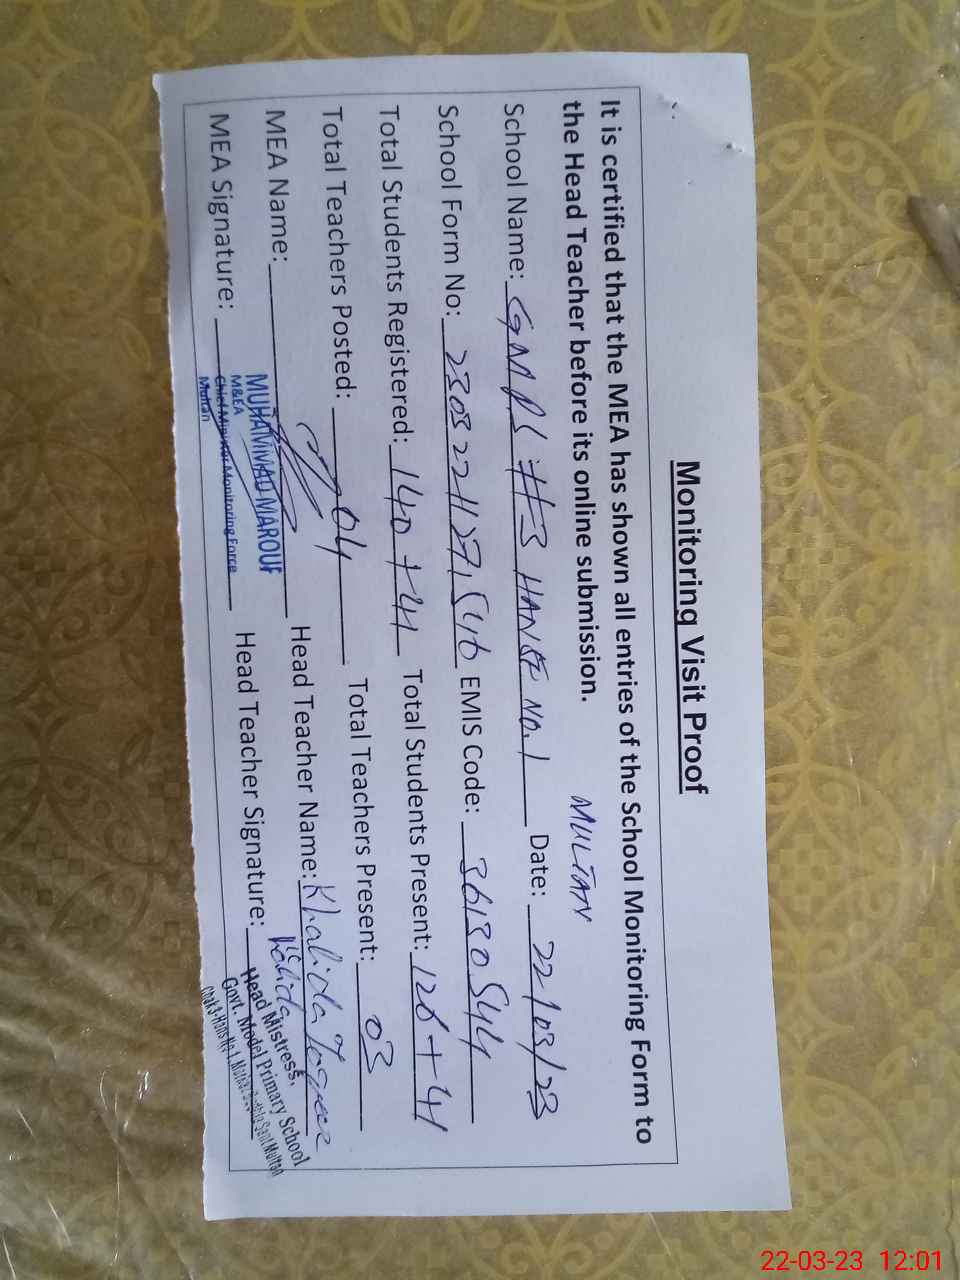 Monitoring Visit Proof
It is certified that the MEA has shown all entries of the School Monitoring Form to
the Head Teacher before its online submission.
MULTAN
School Name: GMPS #3 HANS NO.1 Date: 22/03/23
School Form No: EMIS Code: 36130544
Total Students Registered: 140 + 41 Total Students Present: 128 + 41
Total Teachers Posted: 04 Total Teachers Present: 03
MEA Name: Head Teacher Name: Khalida
MUHAMMAD MAROUF
M&EA
Chief Minister Monitoring Force
Multan
MEA Signature: Head Teacher Signature:
Head Mistress,
Govt. Model Primary School
22-03-23 12:01